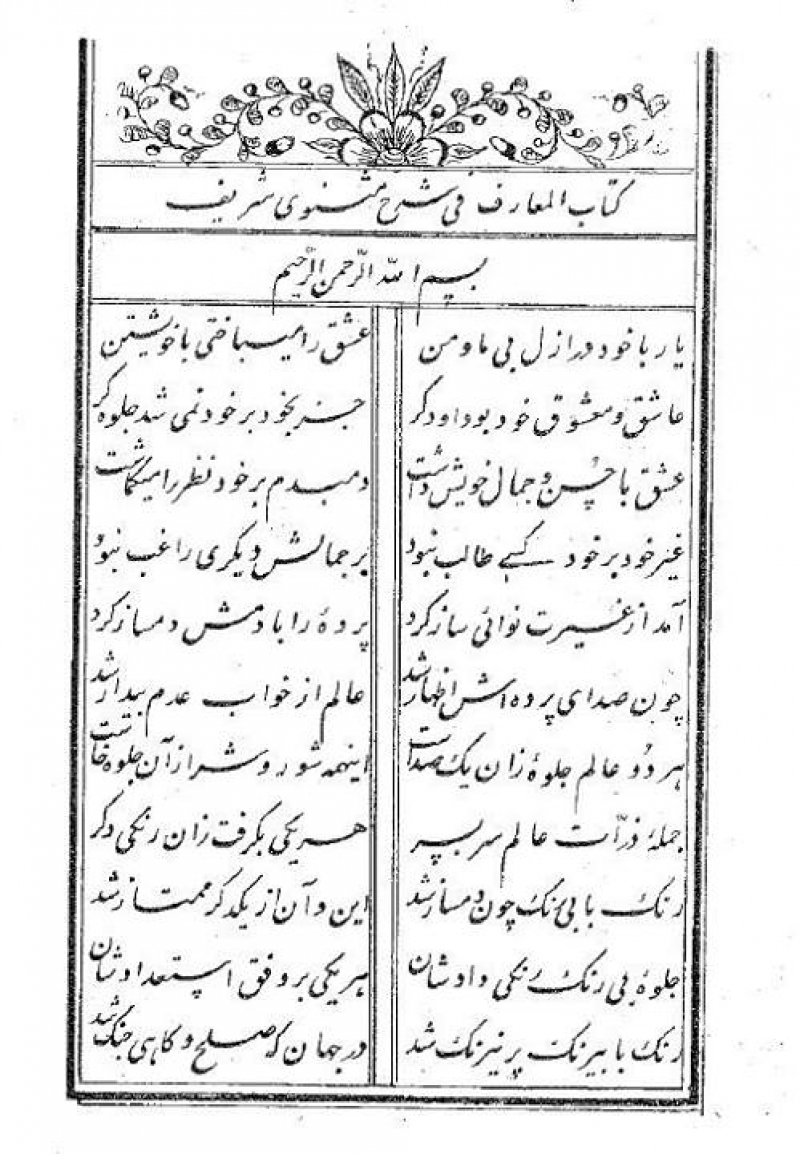 کتاب المعارف فی شرح مثنوی شریف
بسم الله الرحمن الرحیم
یار با خود در ازل بی ما و من عشق را میباختی با خویشتن
عاشق و معشوق خود بود او دکر جز بخود بر خود نمی شد جلوه کر
عشق با حُسن و جمال خویش داشت دمبدم بر خود نظر را میکماشت
غیر خود بر خود کسی طالب نبود بر جمالش دیکری راغب نبود
آمد از غیرت نوائی ساز کرد پردهٔ را با دمش دمساز کرد
چون صدای پرده اش اظهار شد عالم از خواب عدم بیدار شد
هر دُو عالم جلوهٔ زان یک صداست اینهمه شور و شر از آن جلوه خاست
جملهٔ ذرّات عالم سر بسر هر یکی بکرفت زان رنکی دکر
رنک با بی رنک چون دمساز شد این و آن از یکدکر ممتاز شد
جلوهٔ بی رنک رنکی دادشان هر یکی بر وفق استعدادشان
رنک با بیرنک پر نیرنک شد در جهان که صلح و کاهی جنک شد